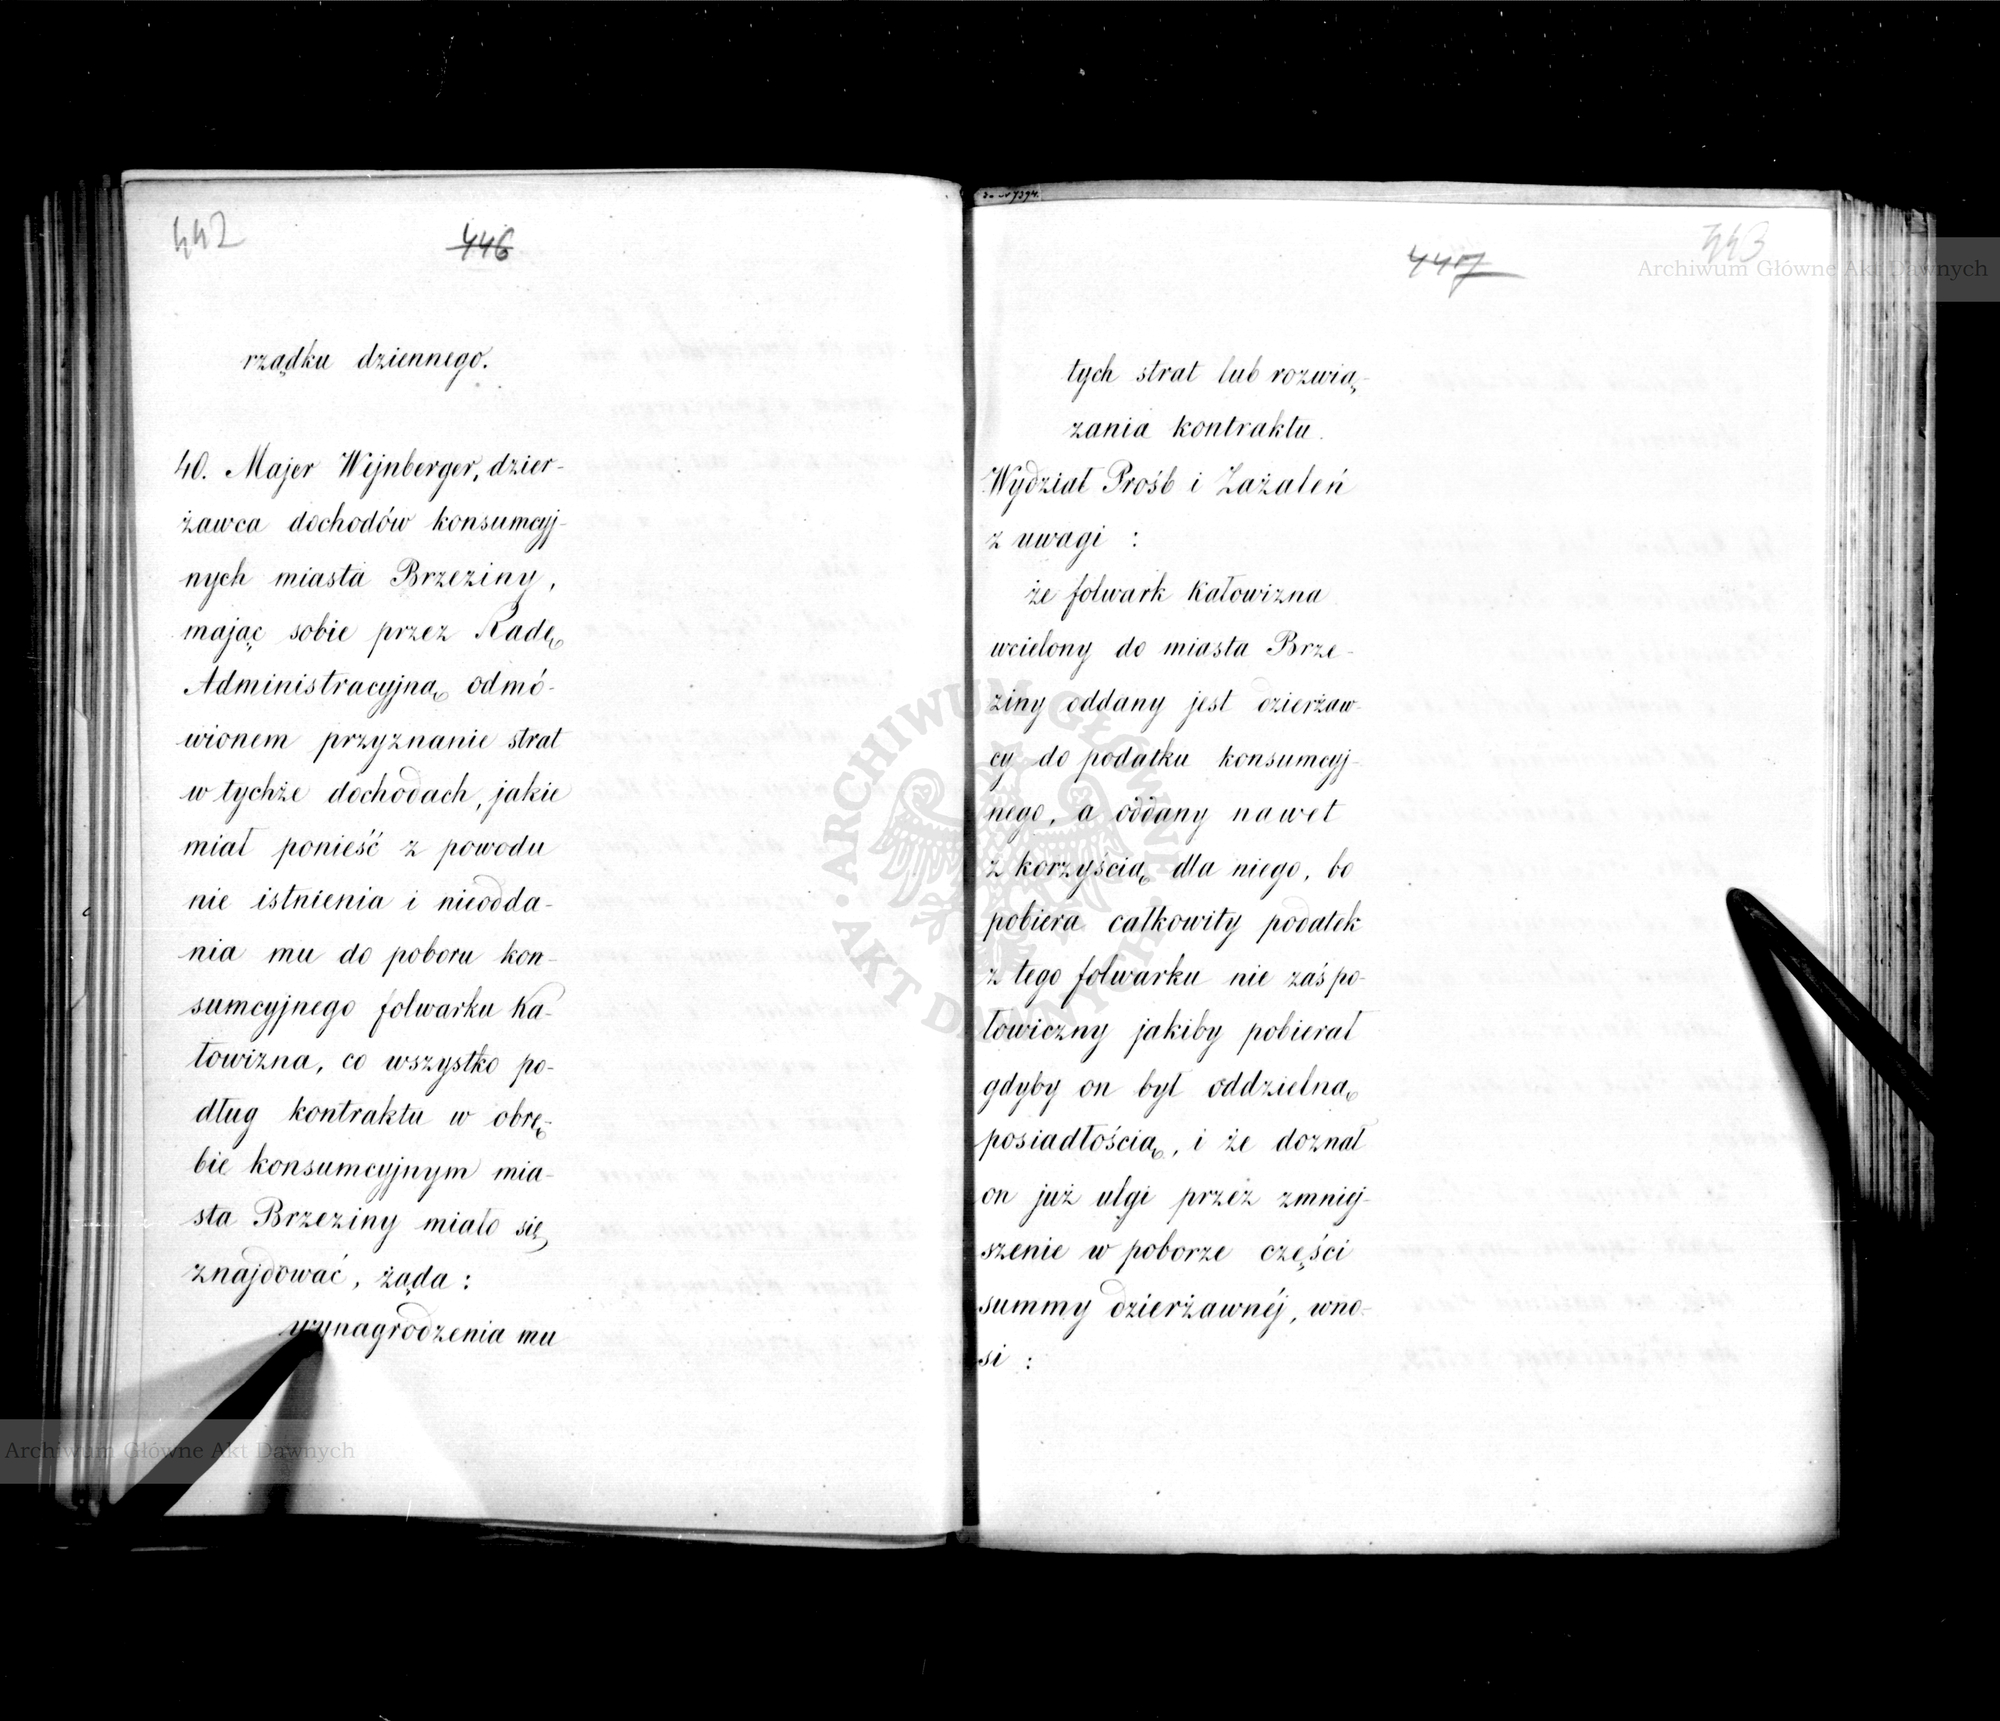 442
446
rządku dziennego.
40. Majer Wejnberger, dzier-
żawca dochodów konsumcyj-
nych miasta Brzeziny,
mając sobie przez Radę
Administracyjną odmó-
wionem przyznanie strat
w tychże dochodach, jakie
miał ponieść z powodu
nie istnienia i nieodda-
nia mu do poboru kon-
sumcyjnego folwarku Ka-
łowizna, co wszystko po-
dług kontraktu w obrę-
bie konsumcyjnym mia-
sta Brzeziny miało się
znajdować, żąda:
wynagrodzenia mu
Archiwum Główne Akt Dawnych
447
443
Archiwum Główne Akt Dawnych
tych strat lub rozwią-
zania kontraktu.
Wydział Prośb i Zażaleń
z uwagi:
że folwark Kałowizna
wcielony do miasta Brze-
ziny oddany jest dzierżaw-
cy do podatku konsumcyj-
nego, a oddany nawet
z korzyścią dla niego, bo
pobiera całkowity podatek
z tego folwarku nie zaś po-
łowiczny jakiby pobierał
gdyby on był oddzielną
posiadłością, i że doznał
on już ulgi przez zmniej-
szenie w poborze części
summy dzierżawnéj, wno-
si:
ARCHIWUM GŁÓWNE AKT DAWNYCH